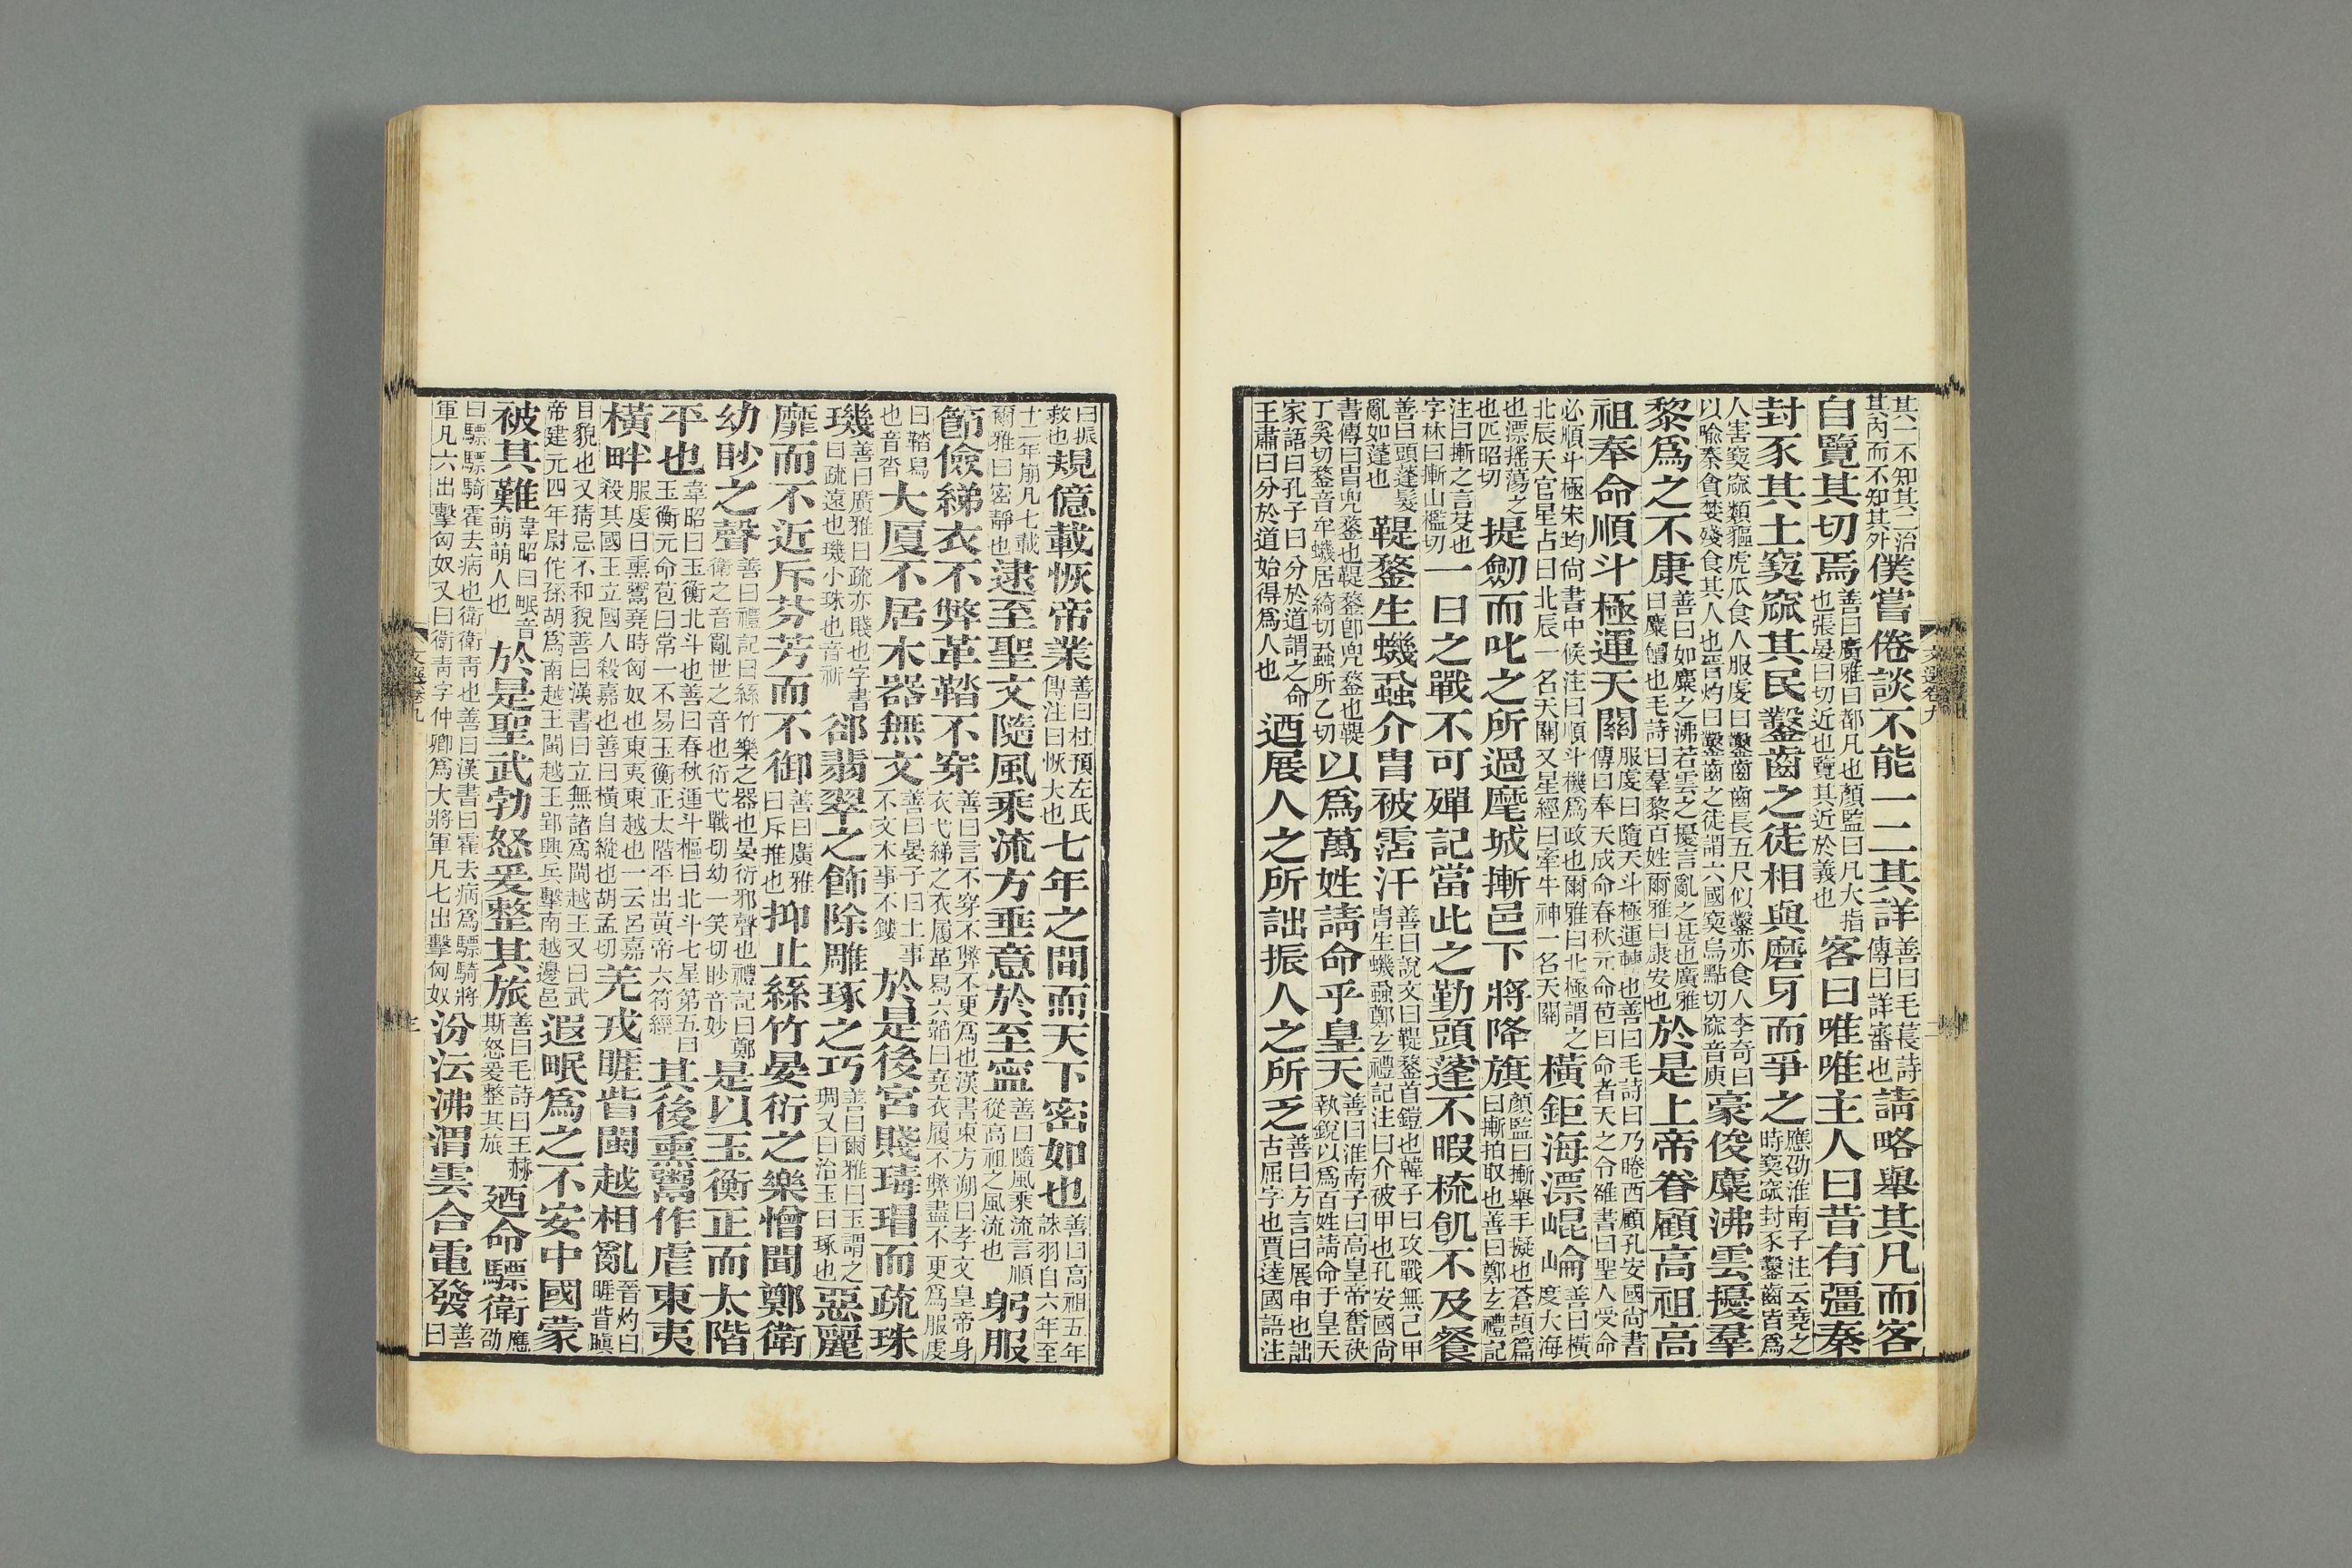 其一不知其二治其內而不知其外僕嘗倦談不能一二其詳善曰毛萇詩傳曰詳審也請略舉其凡而客
自覽其切焉善曰廣雅曰都凡也顏監曰凡大指也張晏曰切近也覽其近於義也客曰唯唯主人曰昔有彊秦
封豕其土窫窳其民鑿齒之徒相與磨牙而爭之應劭淮南子注云堯之時窫窳封豕鑿齒皆爲
人害窫窳類貙虎爪食人服虔曰鑿齒齒長五尺似鑿亦食人李奇曰以喻秦貪婪殘食其人也晉灼曰鑿齒之徒謂六國窫烏點切窳音庾豪俊麋沸雲擾羣
黎爲之不康善曰如麋之沸若雲之擾言亂之甚也廣雅曰麋饘也毛詩曰羣黎百姓爾雅曰康安也於是上帝眷顧高祖高
祖奉命順斗極運天關服虔曰隨天斗極運轉也善曰毛詩曰乃睠西顧孔安國尚書傳曰奉天成命春秋元命苞曰命者天之令雒書曰聖人受命
必順斗極宋均尚書中候注曰順斗機爲政也爾雅曰北極謂之北辰天官星占曰北辰一名天關又星經曰牽牛神一名天關橫鉅海漂崐崘善曰橫度大海
也漂搖蕩之也匹昭切提劒而叱之所過麾城摲邑下將降旗顏監曰摲舉手擬也蒼頡篇曰摲拍取也善曰鄭玄禮記
注曰摲之言芟也字林曰摲山檻切一日之戰不可殫記當此之勤頭蓬不暇梳飢不及餐
善曰頭蓬髮亂如蓬也鞮鍪生蟣蝨介冑被霑汗善曰說文曰鞮鍪首鎧也韓子曰攻戰無已甲冑生蟣蝨鄭玄禮記注曰介被甲也孔安國尚
書傳曰冑兜鍪也鞮鍪卽兜鍪也鞮丁奚切鍪音牟蟣居綺切蝨所乙切以爲萬姓請命乎皇天善曰淮南子曰高皇帝奮袂執銳以爲百姓請命于皇天
家語曰孔子曰分於道謂之命王肅曰分於道始得爲人也迺展人之所詘振人之所乏善曰方言曰展申也詘古屈字也賈逵國語注
文選卷九
二
曰振救也規億載恢帝業善曰杜預左氏傳注曰恢大也七年之間而天下密如也善曰高祖五年誅羽自六年至
十二年崩凡七載爾雅曰密靜也逮至聖文隨風乘流方垂意於至寧善曰隨風乘流言順從高祖之風流也躬服
節儉綈衣不弊革鞜不穿善曰言不穿不弊不更爲也漢書東方朔曰孝文皇帝身衣弋綈之衣履革舄六韜曰堯衣履不弊盡不更爲服虔
曰鞜舄也音沓大厦不居木器無文善曰晏子曰土事不文木事不鏤於是後宮賤瑇瑁而疏珠
璣善曰廣雅曰疏亦賤也字書曰疏遠也璣小珠也音祈卻翡翠之飾除雕琢之巧善曰爾雅曰玉謂之琱又曰治玉曰琢也惡麗
靡而不近斥芬芳而不御善曰廣雅曰斥推也抑止絲竹晏衍之樂憎聞鄭衛
幼眇之聲善曰禮記曰絲竹樂之器也晏衍邪聲也禮記曰鄭衛之音亂世之音也衍弋戰切幼一笑切眇音妙是以玉衡正而太階
平也韋昭曰玉衡北斗也善曰春秋運斗樞曰北斗七星第五曰玉衡元命苞曰常一不易玉衡正太階平出黃帝六符經其後熏鬻作虐東夷
橫畔服虔曰熏鬻堯時匈奴也東夷東越也一云呂嘉殺其國王立國人殺嘉也善曰橫自縱也胡孟切羌戎睚眥閩越相亂晉灼曰睚眥瞋
目貌也又猜忌不和貌善曰漢書曰立無諸爲閩越王又曰武帝建元四年尉佗孫胡爲南越王閩越王郢興兵擊南越邊邑遐眠爲之不安中國蒙
被其難韋昭曰眠音萌萌人也於是聖武勃怒爰整其旅善曰毛詩曰王赫斯怒爰整其旅廼命驃衛應劭
曰驃驃騎霍去病也衛衛青也善曰漢書曰霍去病爲驃騎將軍凡六出擊匈奴又曰衛青字仲卿爲大將軍凡七出擊匈奴汾沄沸渭雲合電發善曰
文選卷九
三